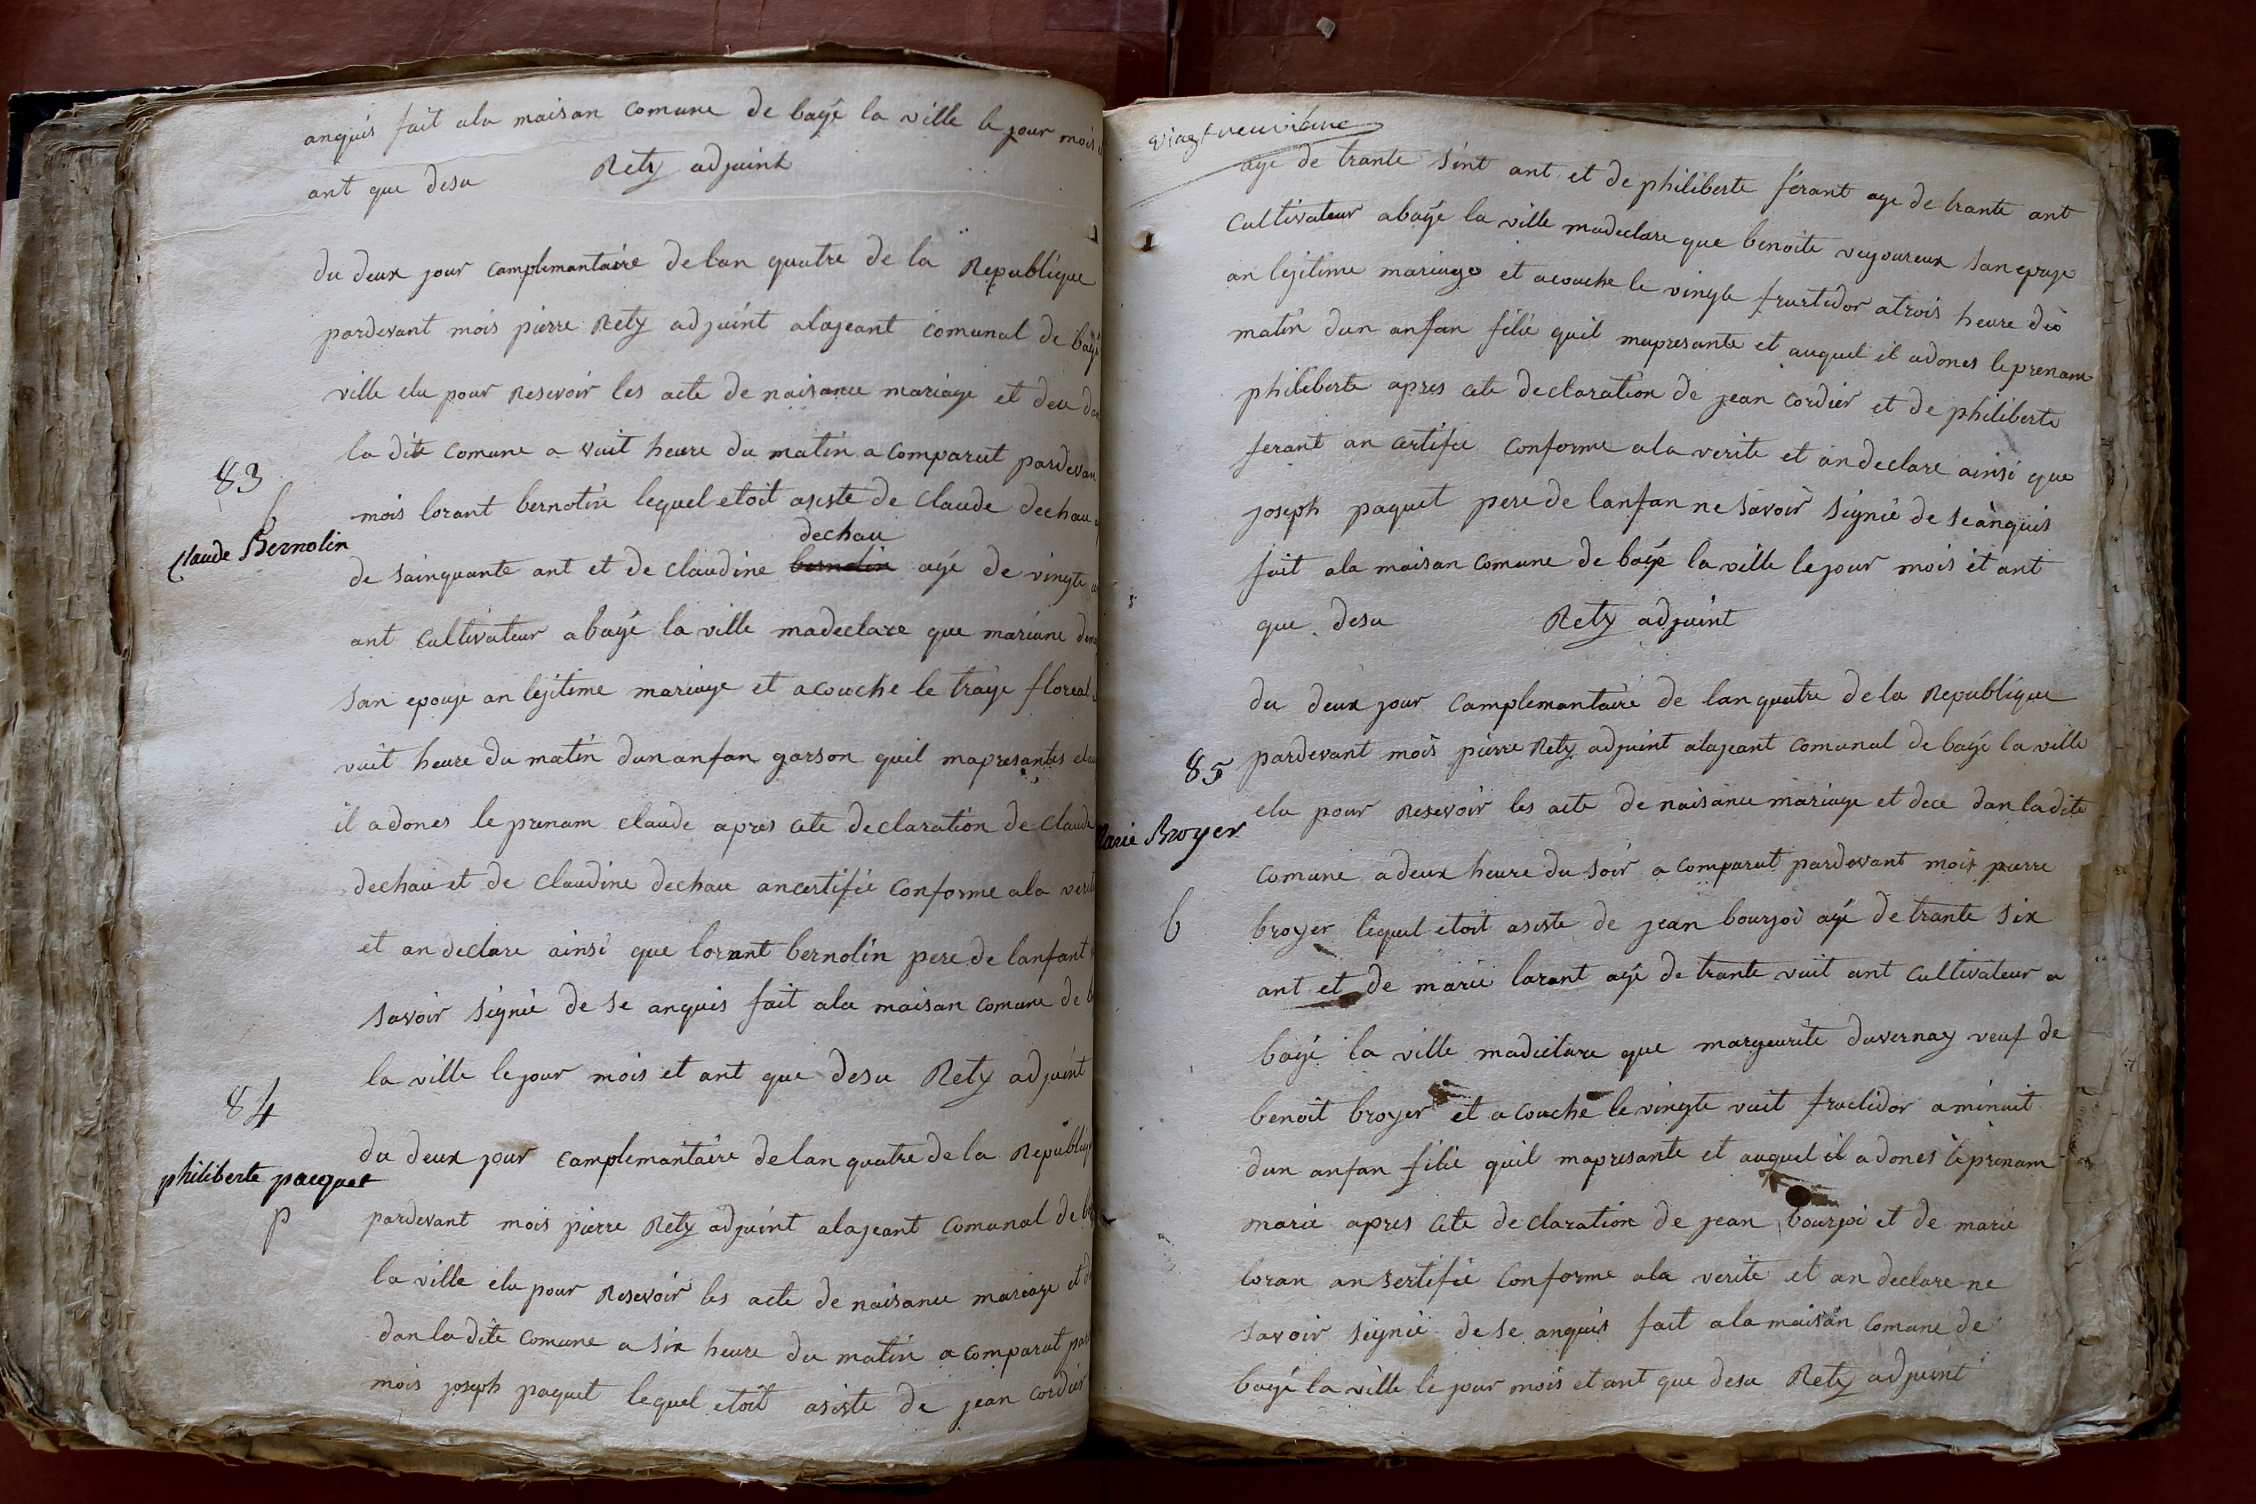 anquis fait ala maisan comune de bagé la ville le jour mois
ant que desu Rety adjuint
du deux jour camplemantaire de lan quatre de la Republique
pardevant mois pierre Rety adjuint alajeant comunal de bagé
ville elu pour Resevoir les acte de naisance mariage et dece dan
la dite comune a vuit heure du matin a comparut pardevan
83
mois lorant bernolin lequel etoit asiste de claude dechau
b
Claude Bernolin
dechau
de sainquante ant et de claudine bernolin agé de vingte
ant cultivateur a bagé la ville madeclare que mariane
san epouse an lejitime mariage et acouche le traise floreal
vuit heure du matin dun anfan garson quil mapresantes
il adones le prenam claude apres cete declaration de claude
dechau et de claudine dechau ancertifié conforme ala verite
et an declare ainsi que lorant bernolin pere de lanfant
savoir signié de se anquis fait ala maisan comune de
la ville le jour mois et ant que desu Rety adjuint
84
du deux jour camplemantaire de lan quatre de la Republique
philiberte pacquet
p
pardevant mois pierre Rety adjuint alajeant comunal de
la ville elu pour Resevoir les acte de naisance mariage et
dan la dite comune a six heure du matin a comparut
mois joseph paquet lequel etoit asiste de jean cordier
vingt neuviéme
age de trante sint ant et de philiberte ferant age de trante ant
cultivateur a bagé la ville madeclare que benoite vuyoureux san epuse
an lejitime mariage et acouche le vingte frustidor atrois heure du
matin dun anfan filie quil mapresante et auquel il adones le prenam
philiberte apres cete declaration de jean cordier et de philiberte
ferant an certifie conforme ala verite et an declare ainsi que
joseph paquet pere de lanfan ne savoir signié de se anquis
fait ala maisan comune de bagé la ville le jour mois et ant
que desu Rety adjuint
du deux jour camplemantaire de lan quatre de la Republique
pardevant mois pierre Rety adjuint alajeant comunal de bagé la ville
85
elu pour Resevoir les acte de naisance mariage et dece dan ladite
Marie Broyer
comune a deux heure du soir a comparut pardevant mois pierre
b
broyer lequel etoit asiste de jean bourjoi agé de trante six
ant et de marie larant agé de trante vuit ant cultivateur a
bagé la ville madeclare que margeurite duvernay veuf de
benoit broyer et acouche le vingte vuit fructidor aminuit
dun anfan filie quil mapresante et auquel il adones le prenam
marie apres cete declaration de jean bourjoi et de marie
loran an sertifié conforme ala verite et an declare ne
savoir signié de se anquis fait ala maisan comune de
bagé la ville le jour mois et ant que desu Rety adjuint